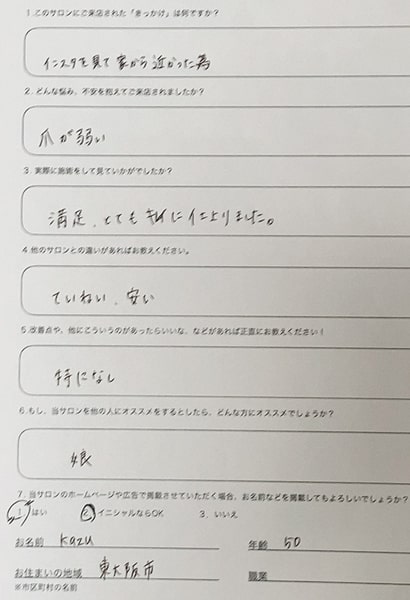 1.このサロンにご来店された「きっかけ」は何ですか?
インスタを見て 家から近かった為
2. どんな悩み、不安を抱えてご来店されましたか?
爪が弱い
3. 実際に施術をして見ていかがでしたか?
満足、とても気に入りました。
4.他のサロンとの違いがあればお教えください。
ていねい、安い
5.改善点や、他にこういうのがあったらいいな、などがあれば正直にお教えください!
特になし
6.もし、当サロンを他の人にオススメをするとしたら、どんな方にオススメでしょうか?
娘
7. 当サロンのホームページや広告で掲載させていただく場合、お名前などを掲載してもよろしいでしょうか?
1. はい 2. イニシャルならOK 3、いいえ
お名前 Kazu 年齢 50
お住まいの地域 東大阪市 職業
※市区町村の名前